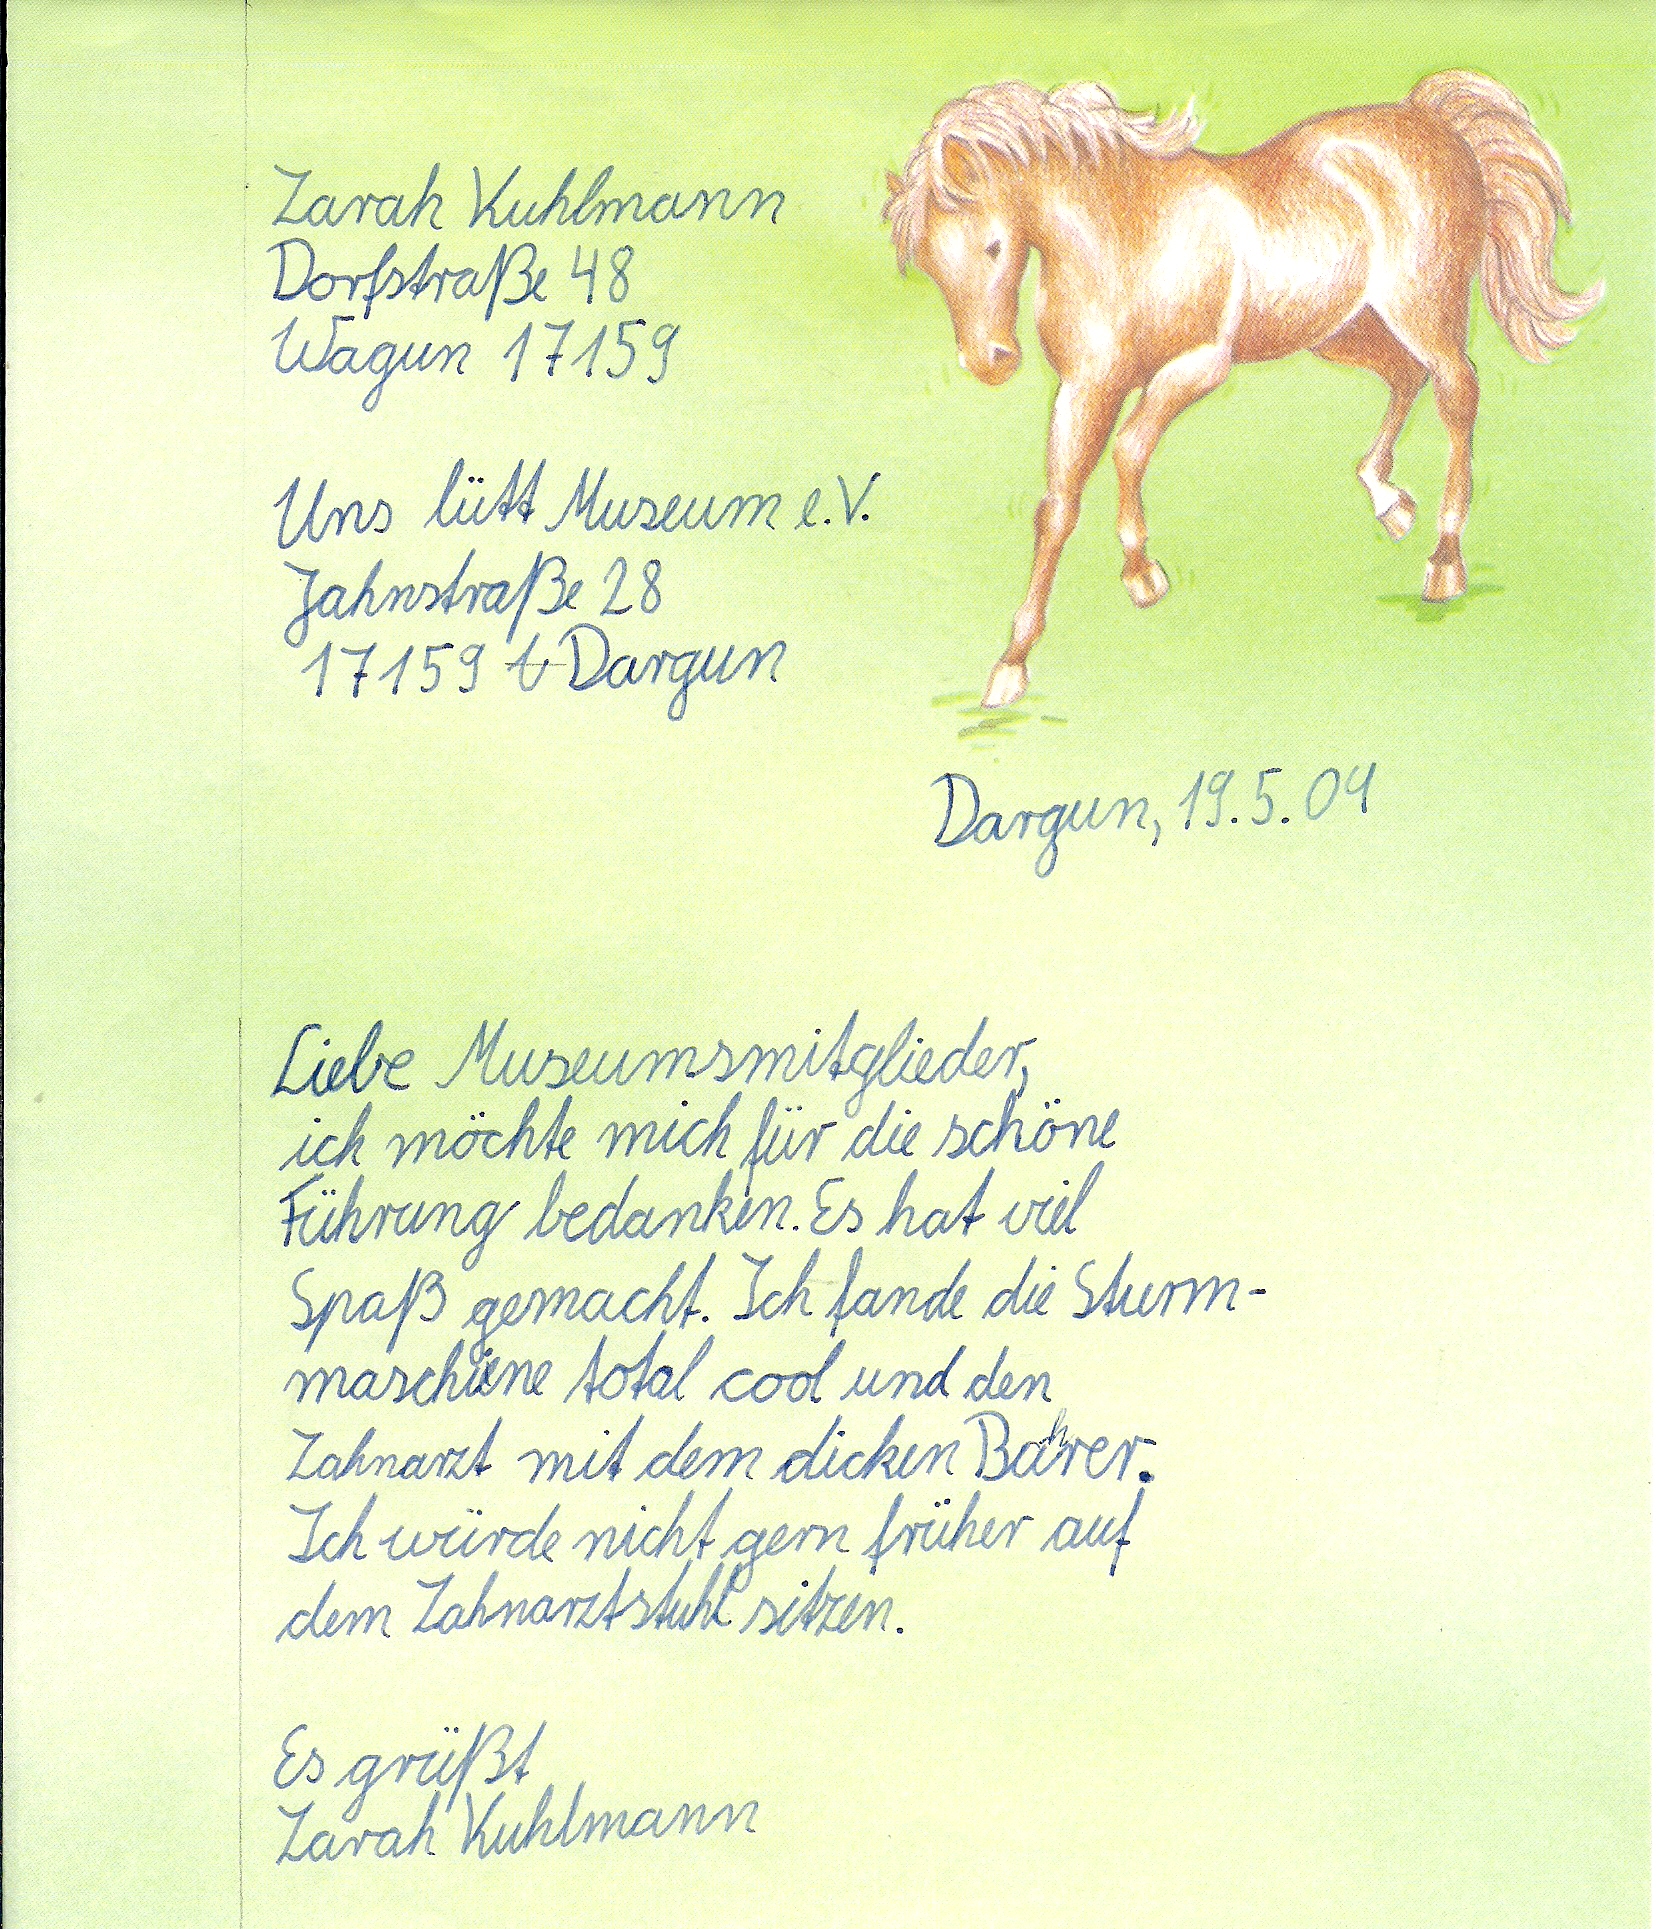 Zarah Kuhlmann
Dorfstraße 48
Wagun 17159
Uns lütt Museum e.V.
Jahnstraße 28
17159 Dargun
Dargun, 19.5.09
Liebe Museumsmitglieder,
ich möchte mich für die schöne
Führung bedanken. Es hat viel
Spaß gemacht. Ich fande die Sturm-
maschiene total cool und den
Zahnarzt mit dem dicken Bahrer.
Ich würde nicht gern früher auf
dem Zahnarztstuhl sitzen.
Es grüßt
Zarah Kuhlmann